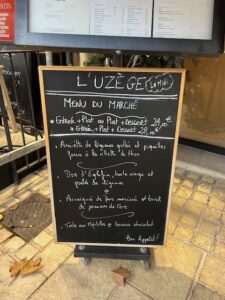 L'UZÈGE
MENU DU MARCHÉ
* Entrée + Plat ou Plat + Dessert 24,00 €
* Entrée + Plat + Dessert 28,00 €
• Assiette de légumes grillés et piquillos
farcis à la rillette de thon
• Dos d'Eglefin, huile vierge et
poêlée de légumes
ou
• de porc mariné et
de pommes de terre
• Tarte aux Myrtilles et banane chocolat
Bon Appétit !